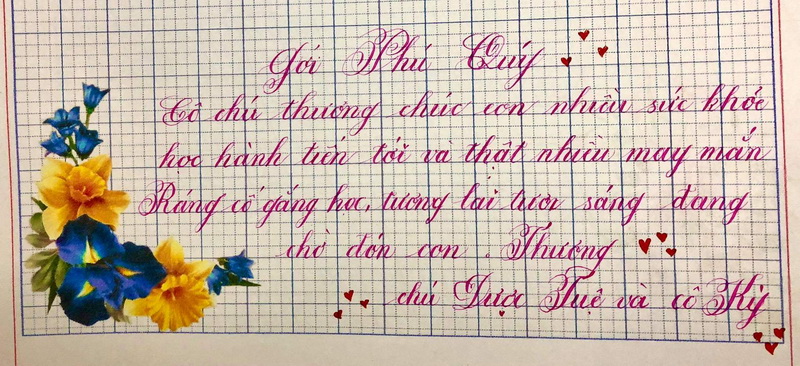 Gởi Phú Quý
Cô chú thương chúc con nhiều sức khỏe
học hành tiến tới và thật nhiều may mắn
Ráng cố gắng học, tương lai tươi sáng đang
chờ đón con. Thương
chú Dược Tuệ và cô Kỳ